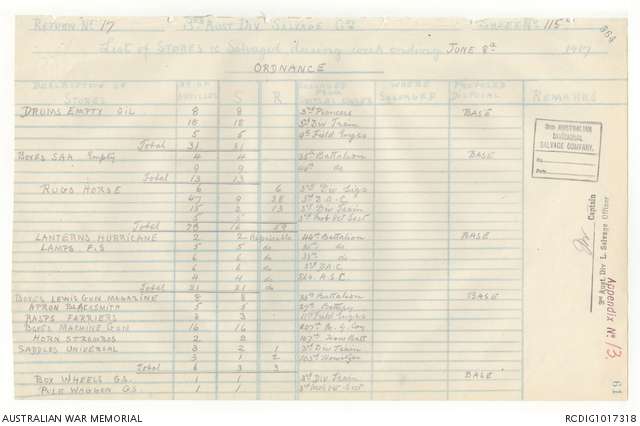 RETURN No 17 3rd Aust Divl Salvage Co. SHEET No 115
List of STORES &c Salvaged during week ending JUNE 8th 1917
ORDNANCE
DESCRIPTION OF STORES No OF ARTICLES S R WHERE SALVAGED PROPOSED DISPOSAL REMARKS
DRUMS EMPTY OIL 8 8 3rd Pioneers BASE
18 18 3rd Div Train
5 5 Field Engrs
Total 31 31
BOXES SAA Empty 4 4 35th Battalion BASE
9 9 do
Total 13 13
RUGS HORSE 6 6 3rd Div Sigs
47 9 38 3rd D.A.C
15 2 13 3rd Div Train
5 5
Total
LANTERNS HURRICANE 2 2 Repairable 44th Battalion BASE
LAMPS F.S 5 5 do do
6 6 do do
6 6 do D.A.C
4 4 do A.S.C
Total 21 21 do
BOXES LEWIS GUN MAGAZINE 8 8 Battalion BASE
APRON BLACKSMITH 5 5 Battery
RASPS FARRIERS 3 3 11th Field Engrs
BOXES MACHINE GUN 16 16 M. G. Coy
HORN STROMBOS 2 2
SADDLES UNIVERSAL 3 2 1 3rd Div Train
3 1 2 105th Howitzer
Total 6 3 3
BOX WHEELS G.S. 1 1 3rd Div Train BASE
POLE WAGGON G.S. 1 1
3RD. AUSTRALIAN
DIVISIONAL
SALVAGE COMPANY.
No.
Date
Captain
3rd Aust. Div L. Salvage Officer
Appendix No 13.
61
AUSTRALIAN WAR MEMORIAL RCDIG1017318